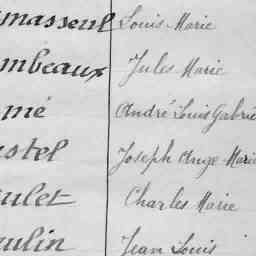 masseul Louis Marie
mbeaux Jules Marie
mé André Louis Gabrie
stel Joseph Ange Marie
ulet Charles Marie
ulin Jean Louis